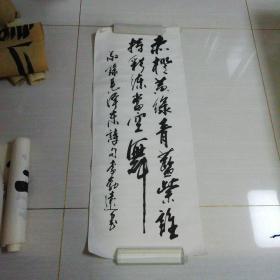 赤橙黄绿青蓝紫谁
持彩练当空舞
录毛泽东诗句李勃